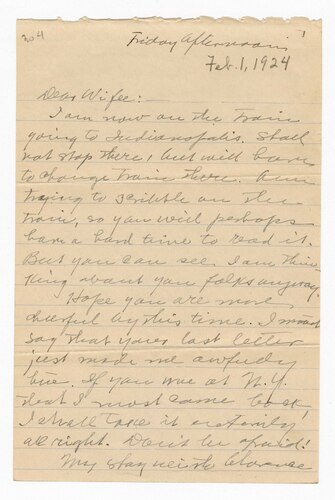 304
1
Friday Afternoon
Feb. 1, 1924
Dear Wifee:-
I am now on the train
going to Indianapolis. Shall
not stop there, but will have
to change train there. Am
trying to scribble on the
train, so you will perhaps
have a hard time to read it.
But you can see I am thin-
king about you folks anyway.
Hope you are more
cheerful by this time. I must
say that your last letter
just made me awfully
blue. If you owe at N.Y.
that I must come back,
I shall take it entirely
all right. Don't be afraid!
My stay with Clarence